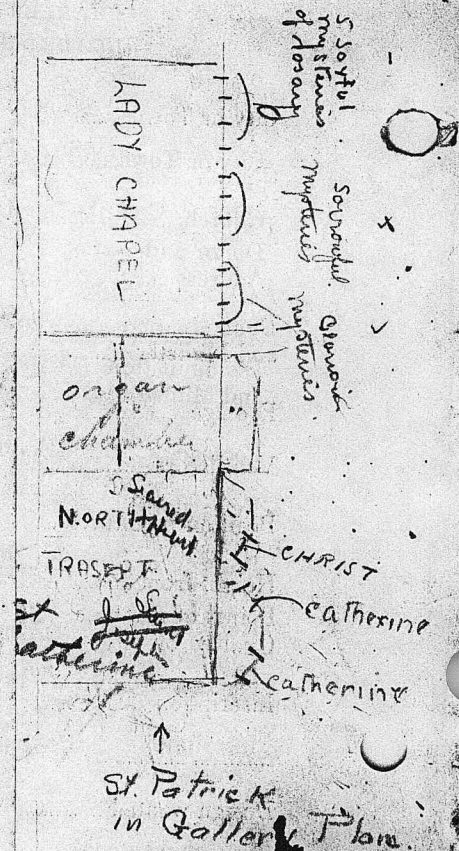 5 Joyful
mysteries
of rosary
Sorrowful
mysteries
Glorious
mysteries
LADY CHAPEL
organ
chamber
"
Sacred
Heart
NORTH
TRASEPT
St
Catherine
St
Joseph
CHRIST
Catherine
Catherine
St. Patrick
in Gallery Plan.